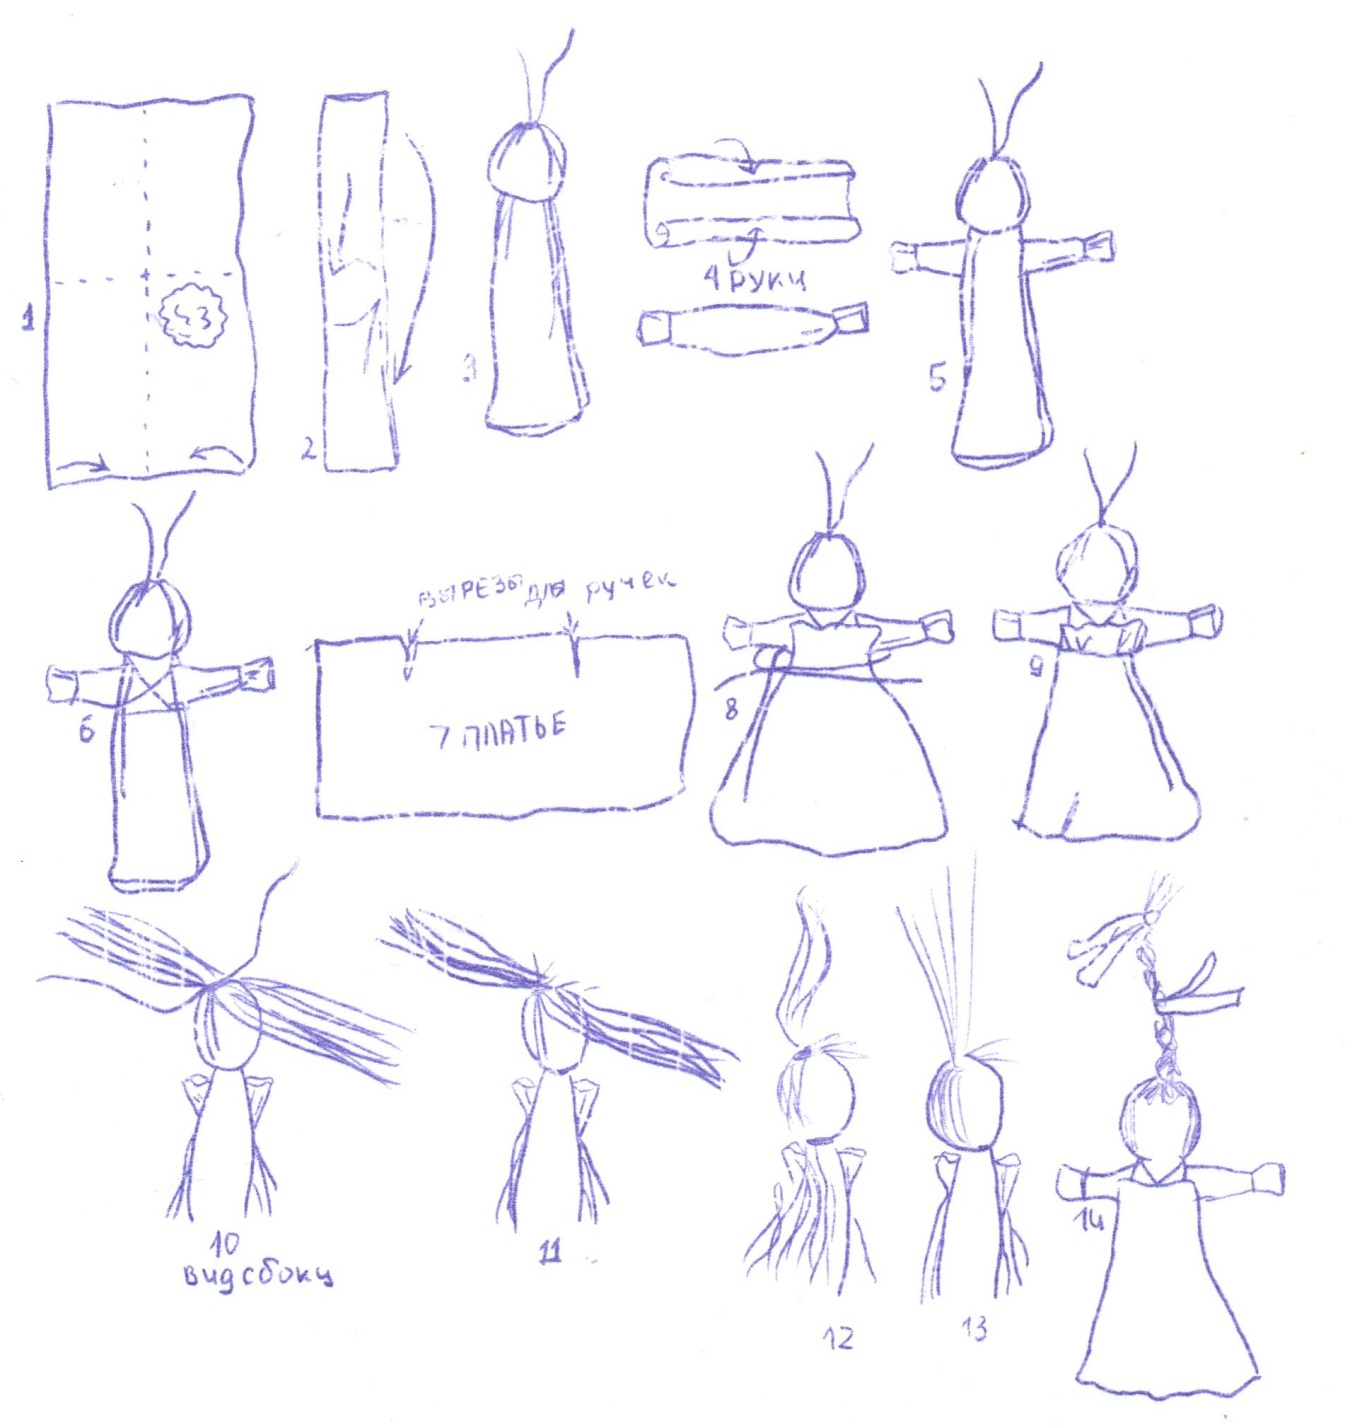 1
2
3
4 руки
5
6
ВЫРЕЗЫ для ручек
7 ПЛАТЬЕ
8
9
10
вид сбоку
11
12
13
14